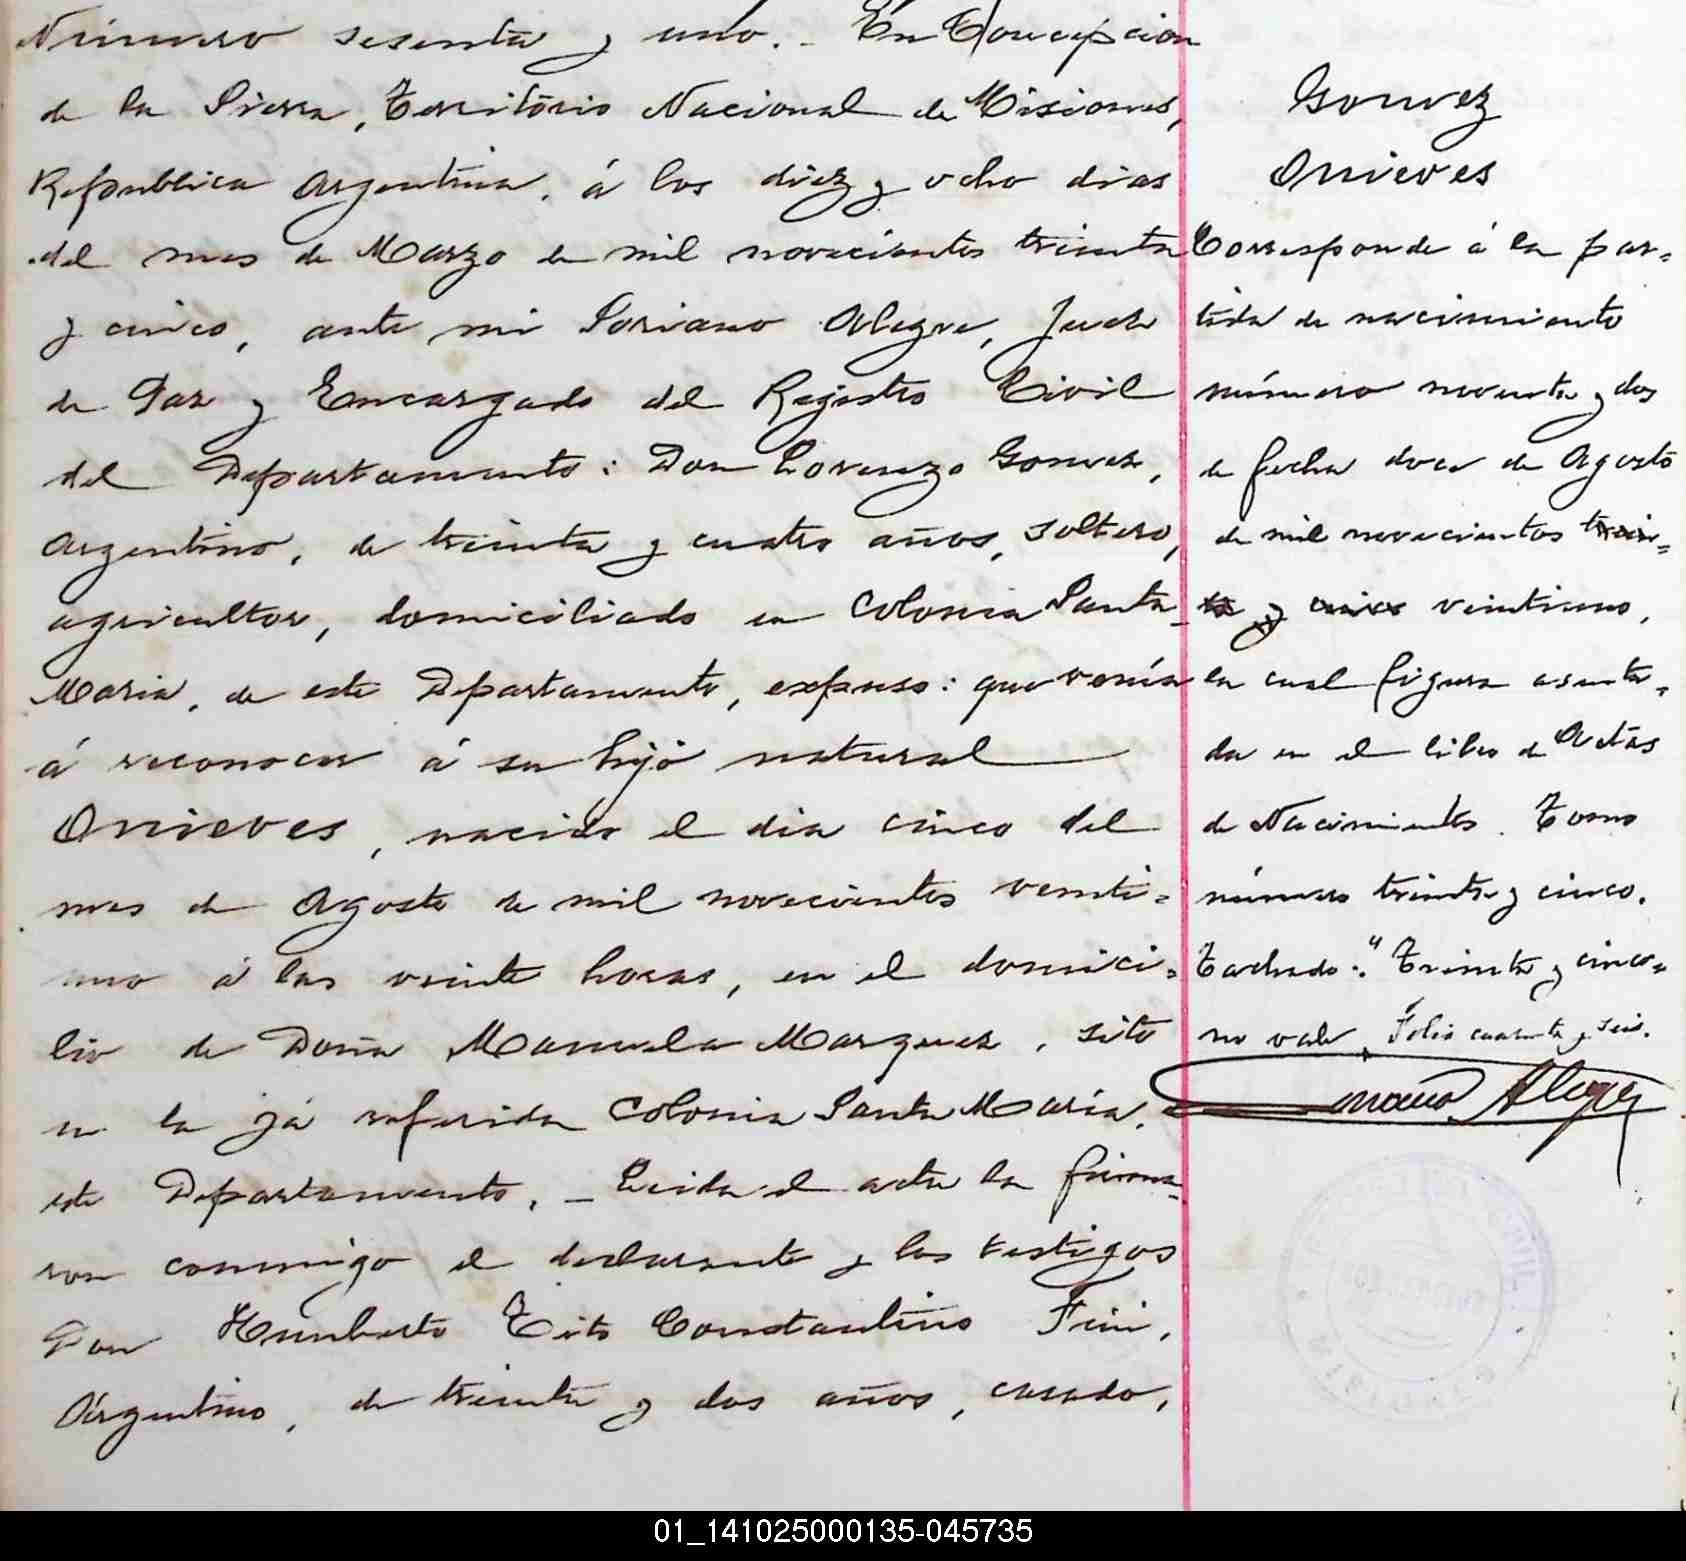 Número sesenta y uno. - En Concepción
de la Sierra, Territorio Nacional de Misiones,
República Argentina, á los diez y ocho dias
del mes de Marzo de mil novecientos treinta
y cinco, ante mi Soriano Alegre, Juez
de Paz y Encargado del Registro Civil
del Departamento: Don Lorenzo Gomez,
Argentino, de treinta y cuatro años, soltero,
agricultor, domiciliado en Colonia Santa
Maria, de este Departamento, expuso: que venía
á reconocer á su hijo natural
Onieves, nacido el dia cinco del
mes de Agosto de mil novecientos veinti=
uno á las veinte horas, en el domici=
lio de Doña Manuela Marquez, sito
en la já referida Colonia Santa María,
este Departamento. - Leida el acta la firma-
ron conmigo el declarante y los testigos
Don Humberto Tito Constantino Fini,
Argentino, de treinta y dos años, casado,
Gomez
Onieves
Corresponde á la par=
tida de nacimiento
número noventa y dos
de fecha doce de Agosto
de mil novecientos trein=
ta y cinco veintiuno,
la cual figura asenta=
da en el libro de Actas
de Nacimientos. Tomo
número treinta y cinco.
Tachado: "Treinta y cinco=
no vale. Folio cuarenta y seis.
Soriano Alegre
01_141025000135-045735